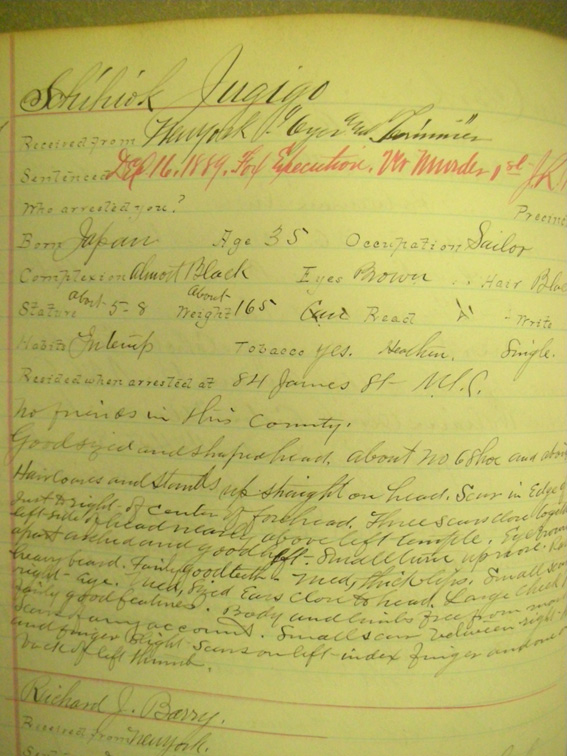 Schihiok Jugigo
Received from New York
Sentenced Dec 16, 1889. For Execution. Mur Murder 1st
Who arrested you? Precin
Born Japan Age 35 Occupation Sailor
Complexion almost Black Eyes Brown Hair Blac
Stature about 5-8 Weight about 165 Read Write
Habits Intemp Tobacco yes. Heathen. Single.
Resided when arrested at 84 James St- N.Y.C.
No friends in this County.
Good sized and shaped head. about no 6 shoe and
Hair coarse and stands up straight on head. Scar in Edge of
just to right of center of forehead. Three scars close together
left side of head nearly above left temple. Eyebrows
apart arched and good Small turn up nose.
heavy beard. Fairly good teeth. Med, thick lips. Small scar
right Med, sized Ears close to head. Large cheek
fairly good features. Body and limbs free from
scars of any account. Small scar between right
and finger Slight scars on left index finger and one on
back of left thumb.
Richard J. Barry.
Received from New York.